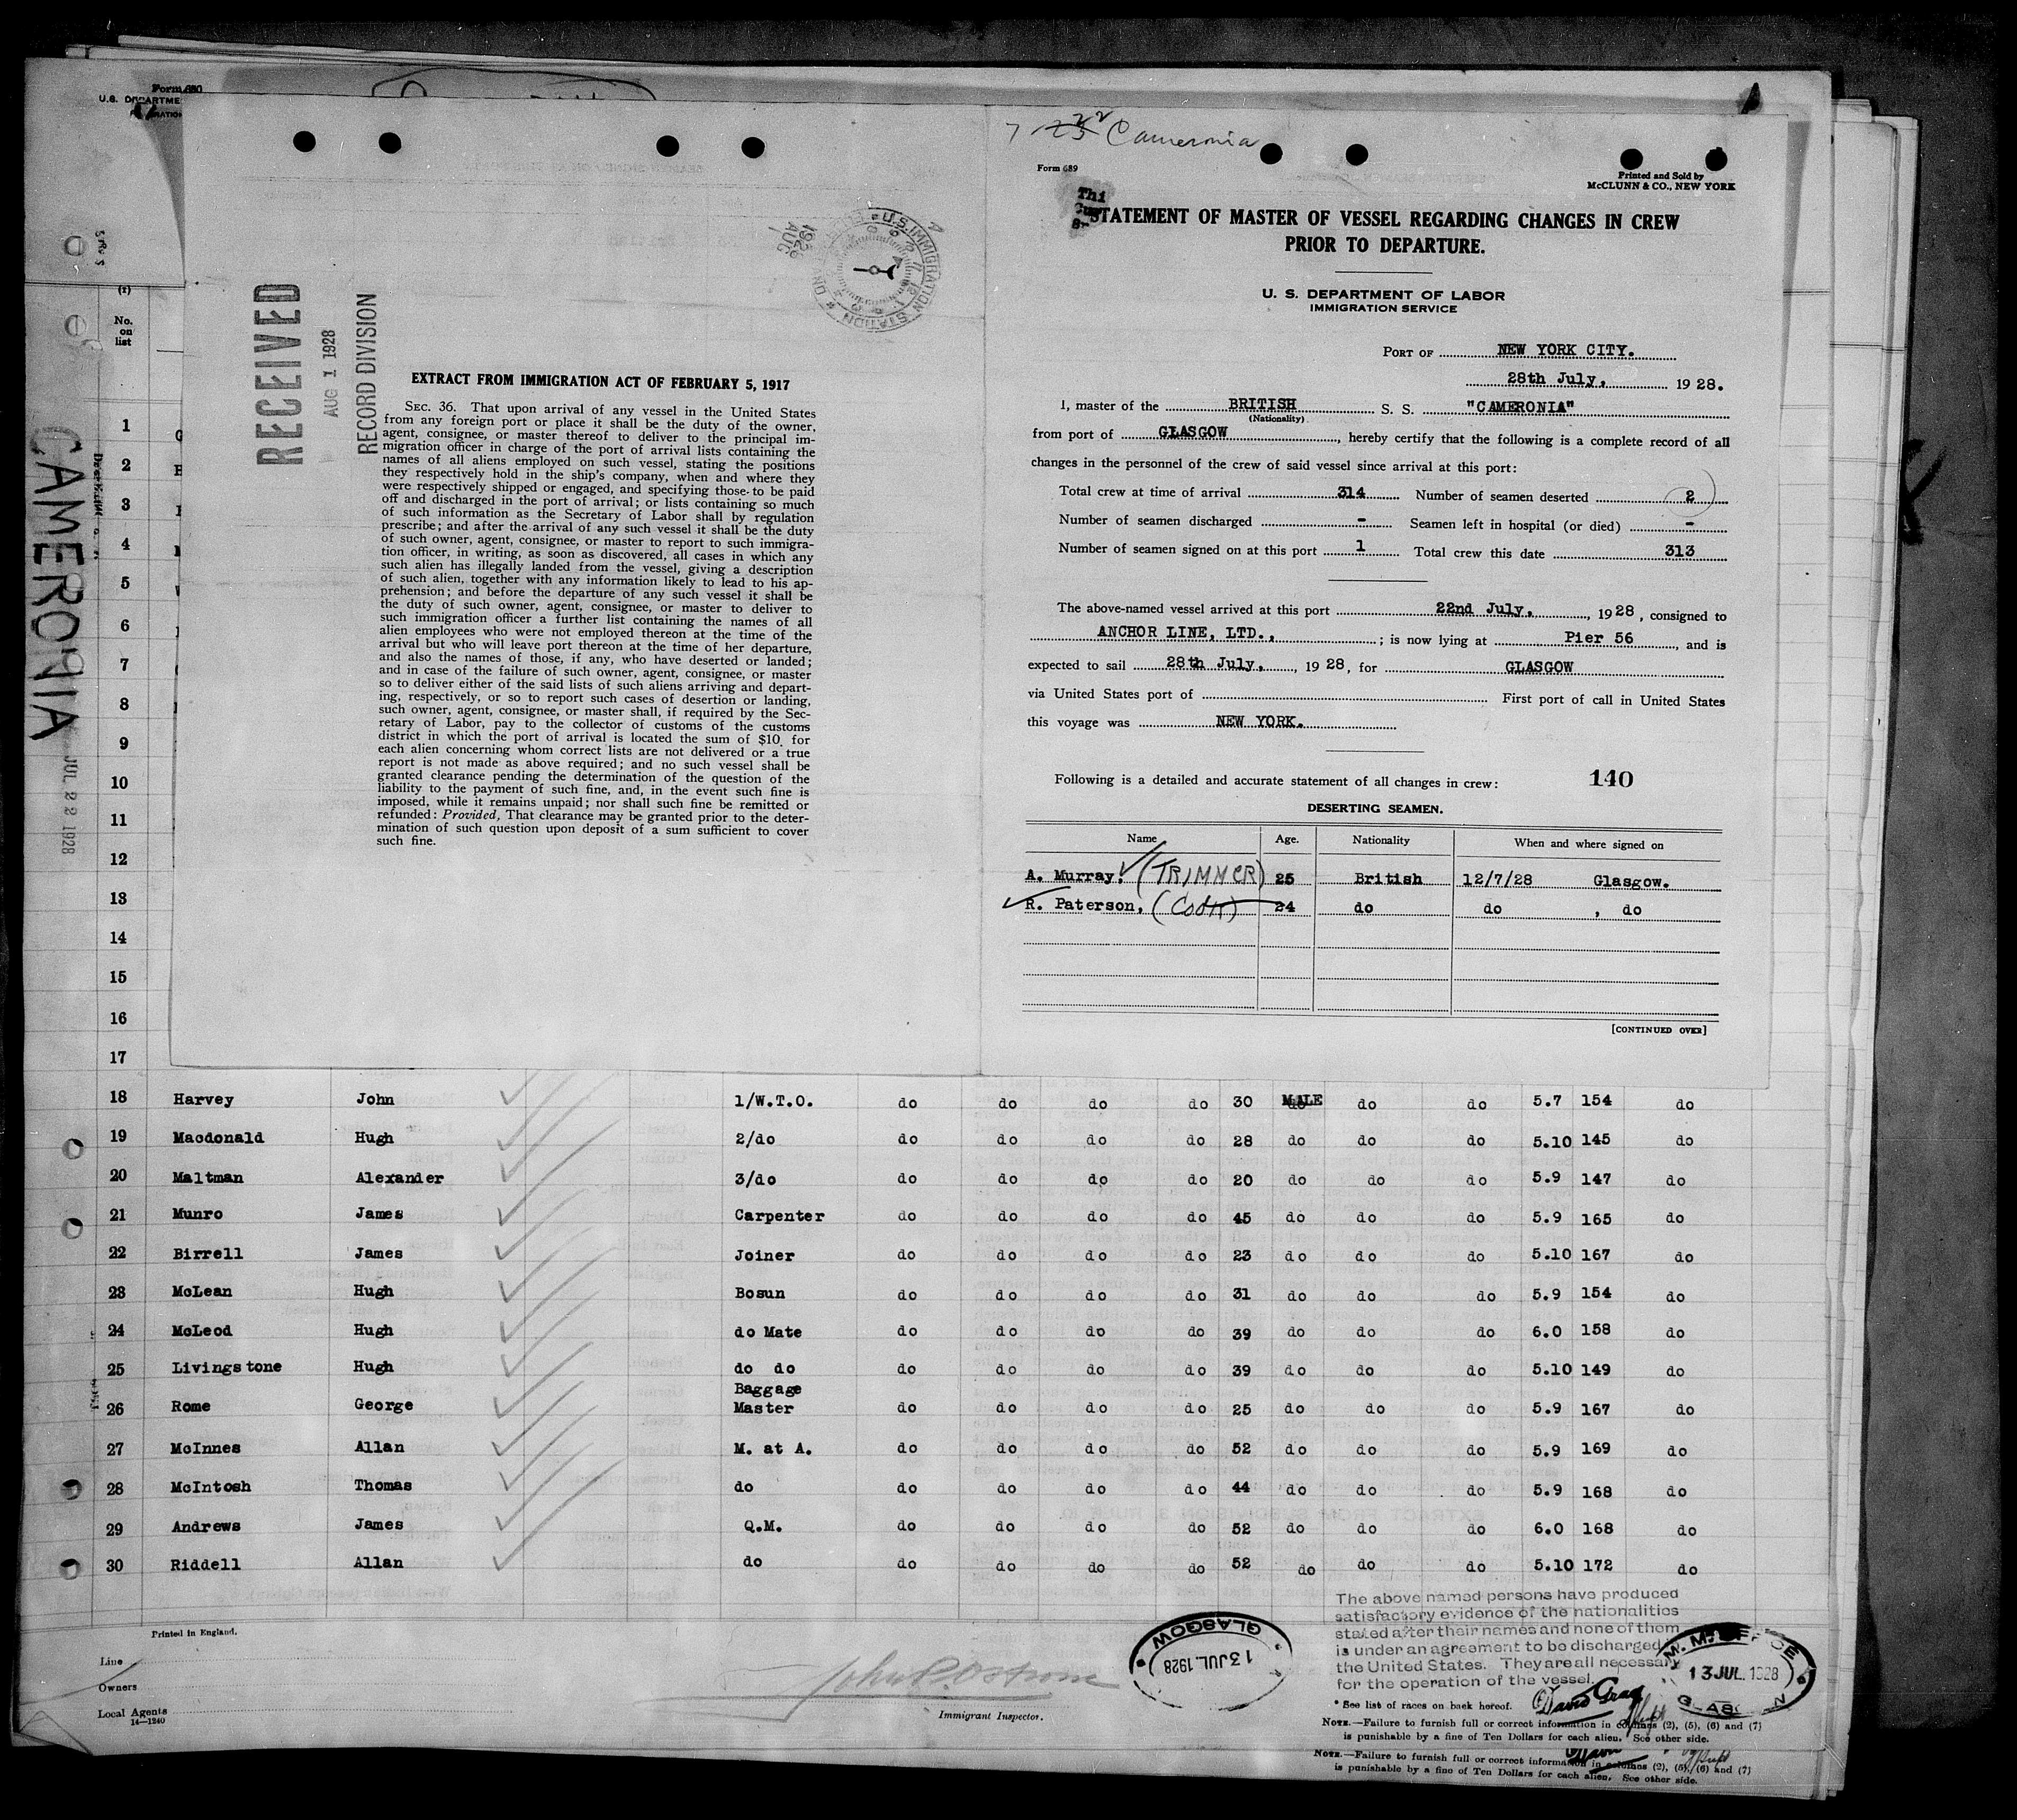 Form 680
U.S. DEPARTME
CAMERONIA
JUL 22 1928
(1)
No.
on
list
1
2
3
4
5
6
7
8
9
10
11
12
13
14
15
16
17
RECEIVED
AUG 1 1928
RECORD DIVISION
U.S. IMMIGRATION STATION
AUG
1928
EXTRACT FROM IMMIGRATION ACT OF FEBRUARY 5, 1917
SEC. 36. That upon arrival of any vessel in the United States
from any foreign port or place it shall be the duty of the owner,
agent, consignee, or master thereof to deliver to the principal im-
migration officer in charge of the port of arrival lists containing the
names of all aliens employed on such vessel, stating the positions
they respectively hold in the ship's company, when and where they
were respectively shipped or engaged, and specifying those to be paid
off and discharged in the port of arrival; or lists containing so much
of such information as the Secretary of Labor shall by regulation
prescribe; and after the arrival of any such vessel it shall be the duty
of such owner, agent, consignee, or master to report to such immigra-
tion officer, in writing, as soon as discovered, all cases in which any
such alien has illegally landed from the vessel, giving a description
of such alien, together with any information likely to lead to his ap-
prehension; and before the departure of any such vessel it shall be
the duty of such owner, agent, consignee, or master to deliver to
such immigration officer a further list containing the names of all
alien employees who were not employed thereon at the time of the
arrival but who will leave port thereon at the time of her departure,
and also the names of those, if any, who have deserted or landed;
and in case of the failure of such owner, agent, consignee, or master
so to deliver either of the said lists of such aliens arriving and depart-
ing, respectively, or so to report such cases of desertion or landing,
such owner, agent, consignee, or master shall, if required by the Sec-
retary of Labor, pay to the collector of customs of the customs
district in which the port of arrival is located the sum of $10 for
each alien concerning whom correct lists are not delivered or a true
report is not made as above required; and no such vessel shall be
granted clearance pending the determination of the question of the
liability to the payment of such fine, and, in the event such fine is
imposed, while it remains unpaid; nor shall such fine be remitted or
refunded: Provided, That clearance may be granted prior to the deter-
mination of such question upon deposit of a sum sufficient to cover
such fine.
Cameronia
Form 689
Printed and Sold by
McCLUNN & CO., NEW YORK
STATEMENT OF MASTER OF VESSEL REGARDING CHANGES IN CREW
PRIOR TO DEPARTURE.
U. S. DEPARTMENT OF LABOR
IMMIGRATION SERVICE
PORT OF NEW YORK CITY.
28th July, 1928.
I, master of the BRITISH S. S. "CAMERONIA"
(Nationality)
from port of GLASGOW, hereby certify that the following is a complete record of all
changes in the personnel of the crew of said vessel since arrival at this port:
Total crew at time of arrival 314 Number of seamen deserted 2
Number of seamen discharged - Seamen left in hospital (or died) -
Number of seamen signed on at this port 1 Total crew this date 313
The above-named vessel arrived at this port 22nd July, 1928, consigned to
ANCHOR LINE, LTD., ; is now lying at Pier 56, and is
expected to sail 28th July, 1928, for GLASGOW
via United States port of First port of call in United States
this voyage was NEW YORK.
Following is a detailed and accurate statement of all changes in crew: 140
DESERTING SEAMEN.
Name Age. Nationality When and where signed on
A. Murray, (TRIMMER) 25 British 12/7/28 Glasgow.
R. Paterson, (Cook) 24 do do , do
[CONTINUED OVER]
18 Harvey John 1/W.T.O. do do do do 30 MALE do do 5.7 154 do
19 Macdonald Hugh 2/do do do do do 28 do do do 5.10 145 do
20 Maltman Alexander 3/do do do do do 20 do do do 5.9 147 do
21 Munro James Carpenter do do do do 45 do do do 5.9 165 do
22 Birrell James Joiner do do do do 23 do do do 5.10 167 do
23 McLean Hugh Bosun do do do do 31 do do do 5.9 154 do
24 McLeod Hugh do Mate do do do do 39 do do do 6.0 158 do
25 Livingstone Hugh do do do do do do 39 do do do 5.10 149 do
26 Rome George Baggage Master do do do do 25 do do do 5.9 167 do
27 McInnes Allan M. at A. do do do do 52 do do do 5.9 169 do
28 McIntosh Thomas do do do do do 44 do do do 5.9 168 do
29 Andrews James Q.M. do do do do 52 do do do 6.0 168 do
30 Riddell Allan do do do do do 52 do do do 5.10 172 do
Printed in England.
Line
Owners
Local Agents
14—1240
Immigrant Inspector.
GLASGOW
13 JUL. 1928
The above named persons have produced
satisfactory evidence of the nationalities
stated after their names and none of them
is under an agreement to be discharged
the United States. They are all necessary
for the operation of the vessel.
M. M. OFFICE
13 JUL. 1928
GLASGOW
* See list of races on back hereof.
David Gray
NOTE.—Failure to furnish full or correct information in columns (2), (5), (6) and (7)
is punishable by a fine of Ten Dollars for each alien. See other side.
NOTE.—Failure to furnish full or correct information in columns (2), (5), (6) and (7)
is punishable by a fine of Ten Dollars for each alien. See other side.